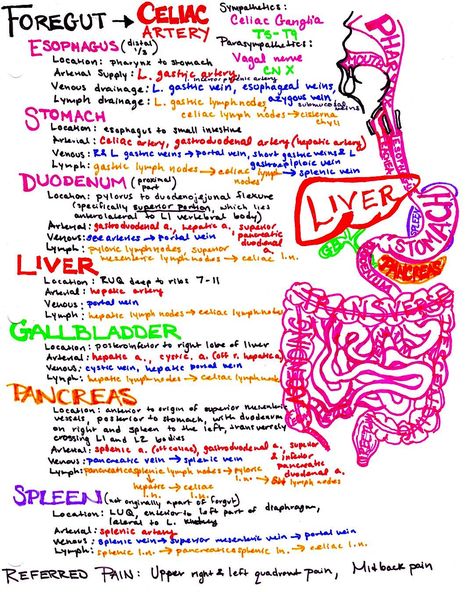 FOREGUT → CELIAC ARTERY
Sympathetics:
Celiac Ganglia
T5-T9
Parasympathetics:
Vagal nerve
CN X
ESOPHAGUS (distal 1/3)
Location: pharynx to stomach
Arterial Supply: L. gastric artery, L. inferior phrenic artery
Venous drainage: L. gastric vein, esophageal veins, azygous vein, submucosal veins
Lymph drainage: L. gastric lymph nodes, celiac lymph nodes → cisterna chyli
STOMACH
Location: esophagus to small intestine
Arterial: Celiac artery, gastroduodenal artery (hepatic artery)
Venous: R & L gastric veins → portal vein, short gastric veins & L gastroepiploic vein → splenic vein
Lymph: gastric lymph nodes → celiac lymph nodes
DUODENUM (proximal part)
Location: pylorus to duodenojejunal flexure
(specifically superior portion, which lies
anterolateral to L1 vertebral body)
Arterial: gastroduodenal a., hepatic a., superior pancreatic duodenal a.
Venous: see arteries → portal vein
Lymph: pyloric lymph nodes, superior mesenteric lymph nodes → celiac l.n.
LIVER
Location: RUQ deep to ribs 7-11
Arterial: hepatic artery
Venous: portal vein
Lymph: hepatic lymph nodes → celiac lymph nodes
GALLBLADDER
Location: posteroinferior to right lobe of liver
Arterial: hepatic a., cystic a. (off r. hepatic a.)
Venous: cystic vein, hepatic portal vein
Lymph: hepatic lymph nodes → celiac lymph nodes
PANCREAS
Location: anterior to origin of superior mesenteric
vessels, posterior to stomach, with duodenum
on right and spleen to the left, transversely
crossing L1 and L2 bodies
Arterial: splenic a. (off celiac), gastroduodenal a., superior & inferior pancreatic duodenal a.
Venous: pancreatic vein → splenic vein
Lymph: pancreaticosplenic lymph nodes → pyloric l.n. →
hepatic l.n. → celiac l.n. lymph nodes
SPLEEN (not originally apart of forgut)
Location: LUQ, anterior to left part of diaphragm,
lateral to L.
Arterial: splenic artery
Venous: splenic vein → superior mesenteric vein → portal vein
Lymph: splenic l.n. → pancreaticosplenic ln. → celiac l.n.
REFERRED PAIN: Upper right & left quadrant pain, Mid back pain
MOUTH
PHARYNX
ESOPHAGUS
LIVER
SPLEEN
STOMACH
GBLAD
PANCREAS
DUODENUM
TRANSVERSE
ASCENDING
RECTUM